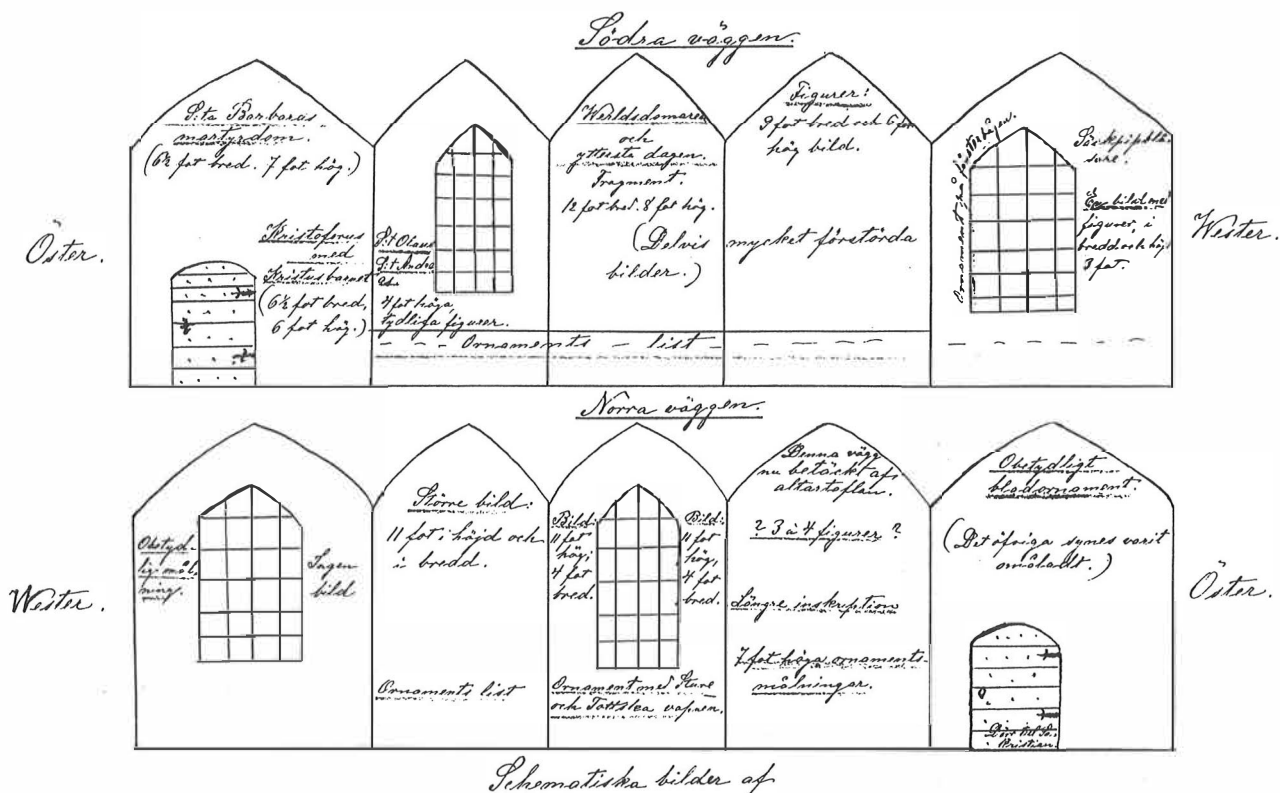 Södra väggen.
Öster.
S:ta Barbaras
martyrdom.
(6½ fot bred. 7 fot hög.)
Kristoferus
med
Kristusbarnet
(6½ fot bred,
6 fot hög.)
S:t Olaus
S:t Andreas
4 fot höga
tydliga figurer.
Werldsdomaren
och
yttersta dagen.
Fragment.
12 fot bred. 8 fot hög.
(Delvis mycket förstörda
bilder.)
Figurer:
9 fot bred och 6 fot
hög bild.
Ornament på fönsterbågen.
Säckpipblå-
sare.
bild med
figurer, i
bredd och höjd
3 fot.
Wester.
Ornaments - list
Norra väggen.
Wester.
Otydlig mål-
ning.
Ingen
bild
Större bild:
11 fot i höjd och
i bredd.
Ornaments list
Bild:
11 fot
hög,
4 fot
bred.
Bild:
11 fot
hög,
4 fot
bred.
Ornament med Sture
och Tottska vapnen.
Denna vägg
nu betäckt af
altartaflan.
? 3 à 4 figurer ?
Längre inskription
7 fot höga ornaments-
målningar.
Obetydligt
bladornament.
(Det öfriga synes varit
omåladt.)
Dörr till Sa-
kristian.
Öster.
Schematiska bilder af